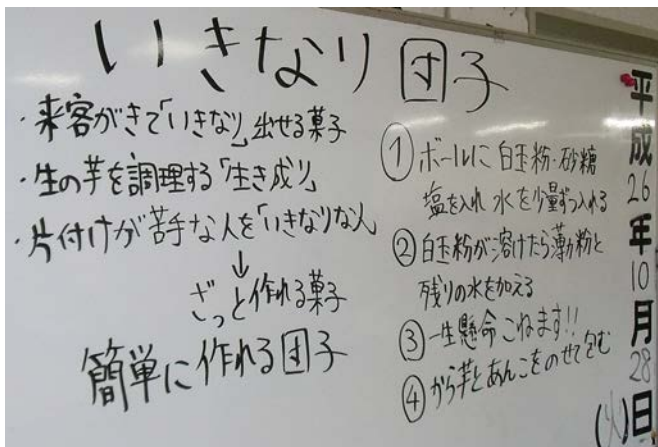 いきなり団子
・来客がきて「いきなり」出せる菓子
・生の芋を調理する「生き成り」
・片付けが苦手な人を「いきなりな人
↓
ざっと作れる菓子
簡単に作れる団子
① ボールに白玉粉・砂糖
塩を入れ 水を少量ずつ入れる
② 白玉粉が溶けたら薄力粉と
残りの水を加える
③ 一生懸命こねます!!
④ から芋とあんこをのせて包む
平成26年10月28日(火)